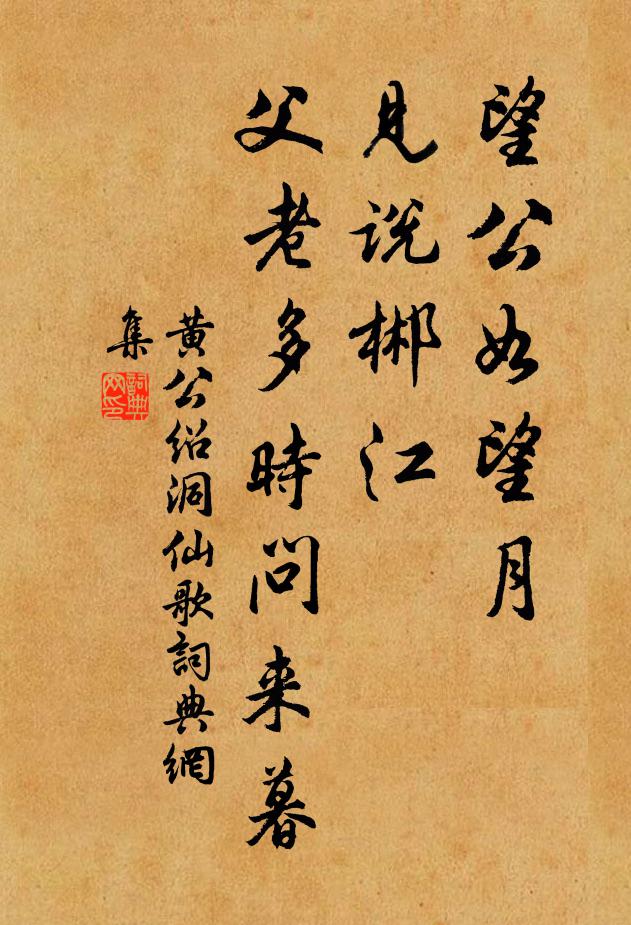 望公如望月
見説郴江
父老多時問来暮
黄公绍洞仙歌詞典網
集
詞典
网印